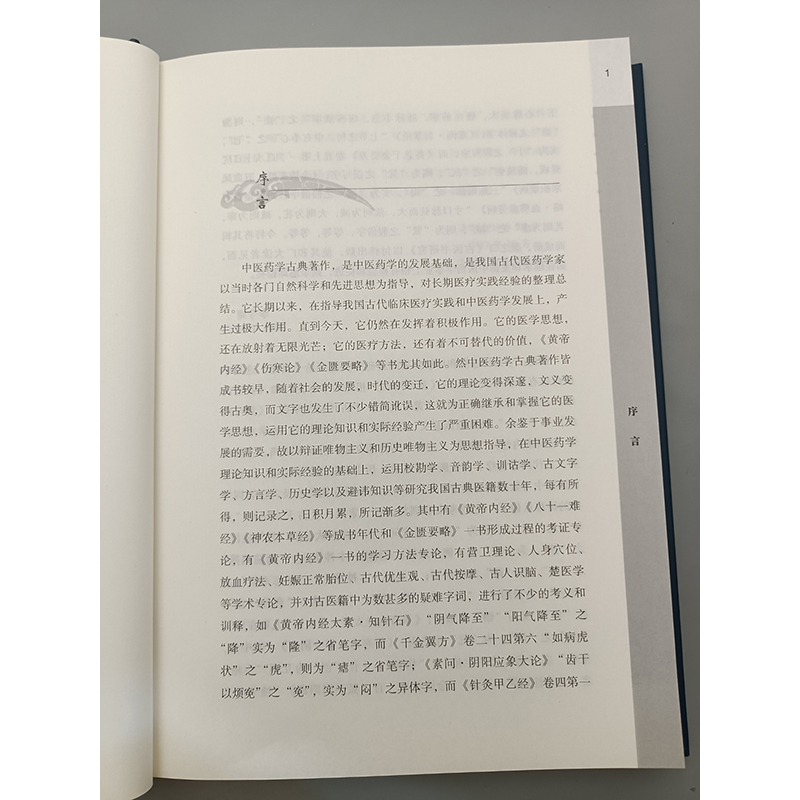 1
序言
中医药学古典著作，是中医药学的发展基础，是我国古代医药学家
以当时各门自然科学和先进思想为指导，对长期医疗实践经验的整理总
结。它长期以来，在指导我国古代临床医疗实践和中医药学发展上，产
生过极大作用。直到今天，它仍然在发挥着积极作用。它的医学思想，
还在放射着无限光芒；它的医疗方法，还有着不可替代的价值，《黄帝
内经》《伤寒论》《金匮要略》等书尤其如此。然中医药学古典著作皆
成书较早，随着社会的发展，时代的变迁，它的理论变得深邃，文义变
得古奥，而文字也发生了不少错简讹误，这就为正确继承和掌握它的医
学思想，运用它的理论知识和实际经验产生了严重困难。余鉴于事业发
展的需要，故以辩证唯物主义和历史唯物主义为思想指导，在中医药学
理论知识和实际经验的基础上，运用校勘学、音韵学、训诂学、古文字
学、方言学、历史学以及避讳知识等研究我国古典医籍数十年，每有所
得，则记录之，日积月累，所记渐多。其中有《黄帝内经》《八十一难
经》《神农本草经》等成书年代和《金匮要略》一书形成过程的考证专
论，有《黄帝内经》一书的学习方法专论，有营卫理论、人身穴位、
放血疗法、妊娠正常胎位、古代优生观、古代按摩、古人识脑、楚医学
等学术专论，并对古医籍中为数甚多的疑难字词，进行了不少的考义和
训释，如《黄帝内经太素·知针石》“阴气降至”“阳气降至”之
“降”实为“隆”之省笔字；而《千金翼方》卷二十四第六“如病虎
状”之“虎”，则为“瘧”之省笔字；《素问·阴阳应象大论》“齿干
以烦宛”之“宛”，实为“闷”之异体字，而《针灸甲乙经》卷四第一
序言